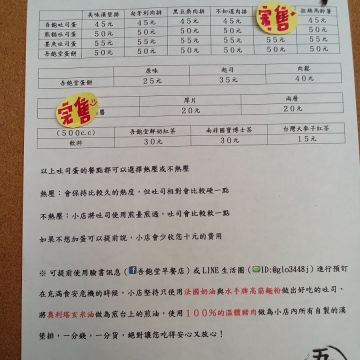 美味漢堡排 匈牙利肉排 黑豆桑肉排 不知道肉排 馬鈴薯
吾飽吐司蛋 45元 45元 45元 45元 45元
熊貓吐司蛋 50元 50元 50元 50元 50元
墨魚吐司蛋 55元 55元 55元 55元 55元
50元 50元 50元 50元 50元
原味 起司 肉鬆
吾飽堂蛋餅 25元 35元 40元
完售
厚片
20元 20元
完售
(500c.c) 吾飽堂鮮奶紅茶 南非國寶博士茶 台灣大麥子紅茶
飲料 30元 30元 15元
以上吐司蛋的餐點都可以選擇熱壓或不熱壓
熱壓：會保持比較久的熱度，但吐司相對會比較硬一點
不熱壓：小店將吐司使用煎臺煎過，吐司會比較軟一點
如果不想加蛋可以提前說，小店會少收您十元的費用
※ 可提前使用臉書訊息（吾飽堂早餐店）或LINE生活圈（ID:@glo3448j）進行預訂
在充滿食安危機的時候，小店堅持只使用法國奶油與水平牌高筋麵粉做出好吃的吐司、
將奧利塔玄米油做為煎台上的煎油，使用100%的溫體豬肉做為小店內所有自製的漢
堡排，一分錢，一分貨，絕對讓您吃得安心又放心！
五